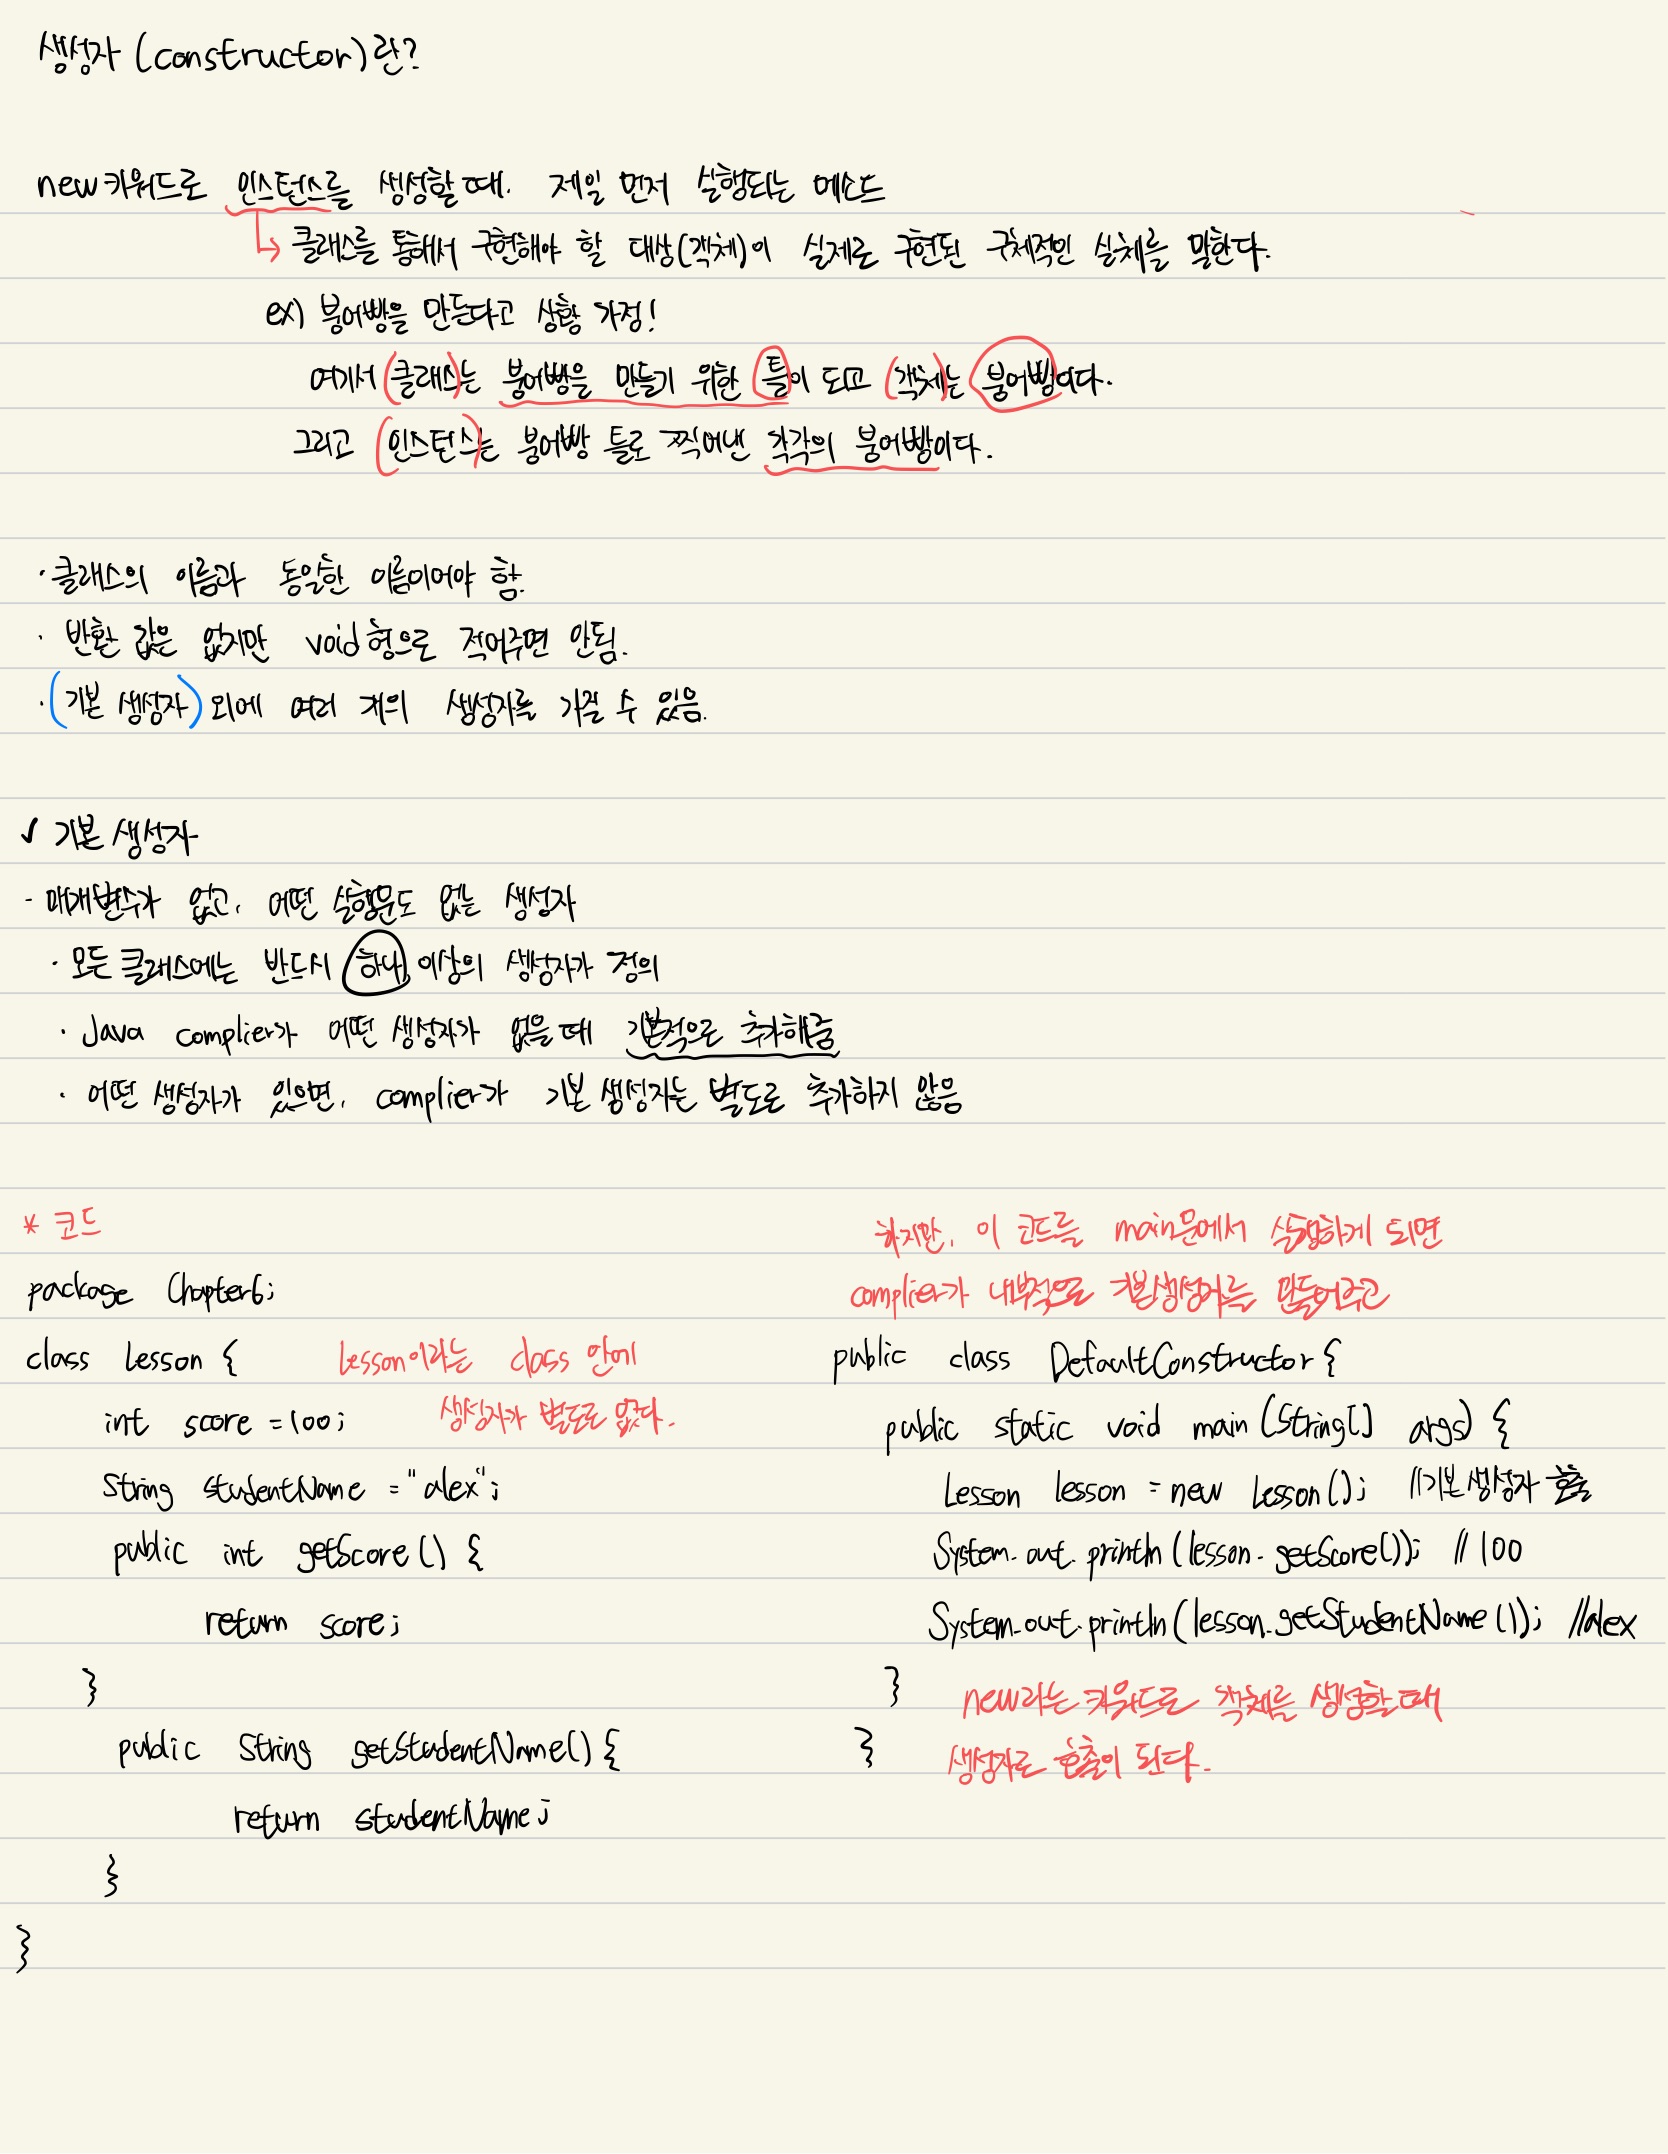 생성자 (constructor)란?
new 키워드로 인스턴스를 생성할 때. 제일 먼저 실행되는 메소드
클래스를 통해서 구현해야 할 대상(객체)이 실제로 구현된 구체적인 실체를 말한다.
ex) 붕어빵을 만든다고 상황 가정!
여기서 (클래스)는 붕어빵을 만들기 위한 틀이 되고 (객체)는 붕어빵이다.
그리고 (인스턴스)는 붕어빵 틀로 찍어낸 각각의 붕어빵이다.
· 클래스의 이름과 동일한 이름이어야 함.
· 반환 값은 없지만 void형으로 적어주면 안됨.
· (기본 생성자) 외에 여러 개의 생성자를 가질 수 있음.
✓ 기본 생성자
- 매개변수가 없고, 어떤 실행문도 없는 생성자
· 모든 클래스에는 반드시 하나 이상의 생성자가 정의
· Java complier가 어떤 생성자가 없을 때 기본적으로 추가해줌
· 어떤 생성자가 있으면, complier가 기본 생성자는 별도로 추가하지 않음
* 코드
package Chapter6;
class Lesson { Lesson이라는 class 안에
int score = 100; 생성자가 별도로 없다.
String studentName = "alex";
public int getScore() {
return score;
}
public String getStudentName() {
return studentName;
}
}
하지만, 이 코드를 main문에서 실행하게 되면
complier가 내부적으로 기본생성자를 만들어주고
public class DefaultConstructor {
public static void main (String[] args) {
Lesson lesson = new Lesson(); //기본 생성자 호출
System.out.println(lesson.getScore()); // 100
System.out.println(lesson.getStudentName()); //alex
} new라는 키워드로 객체를 생성할 때
} 생성자로 호출이 된다.